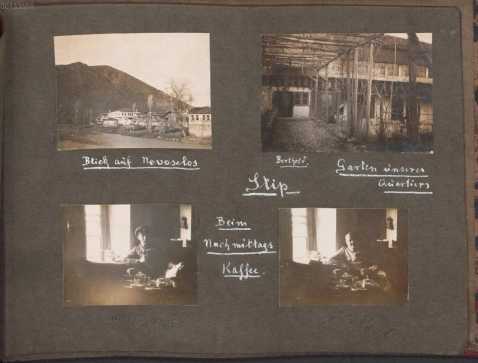 Blick auf Novoselos
Garten unseres
Quartiers
Stip
Beim
Nachmittags
Kaffee.